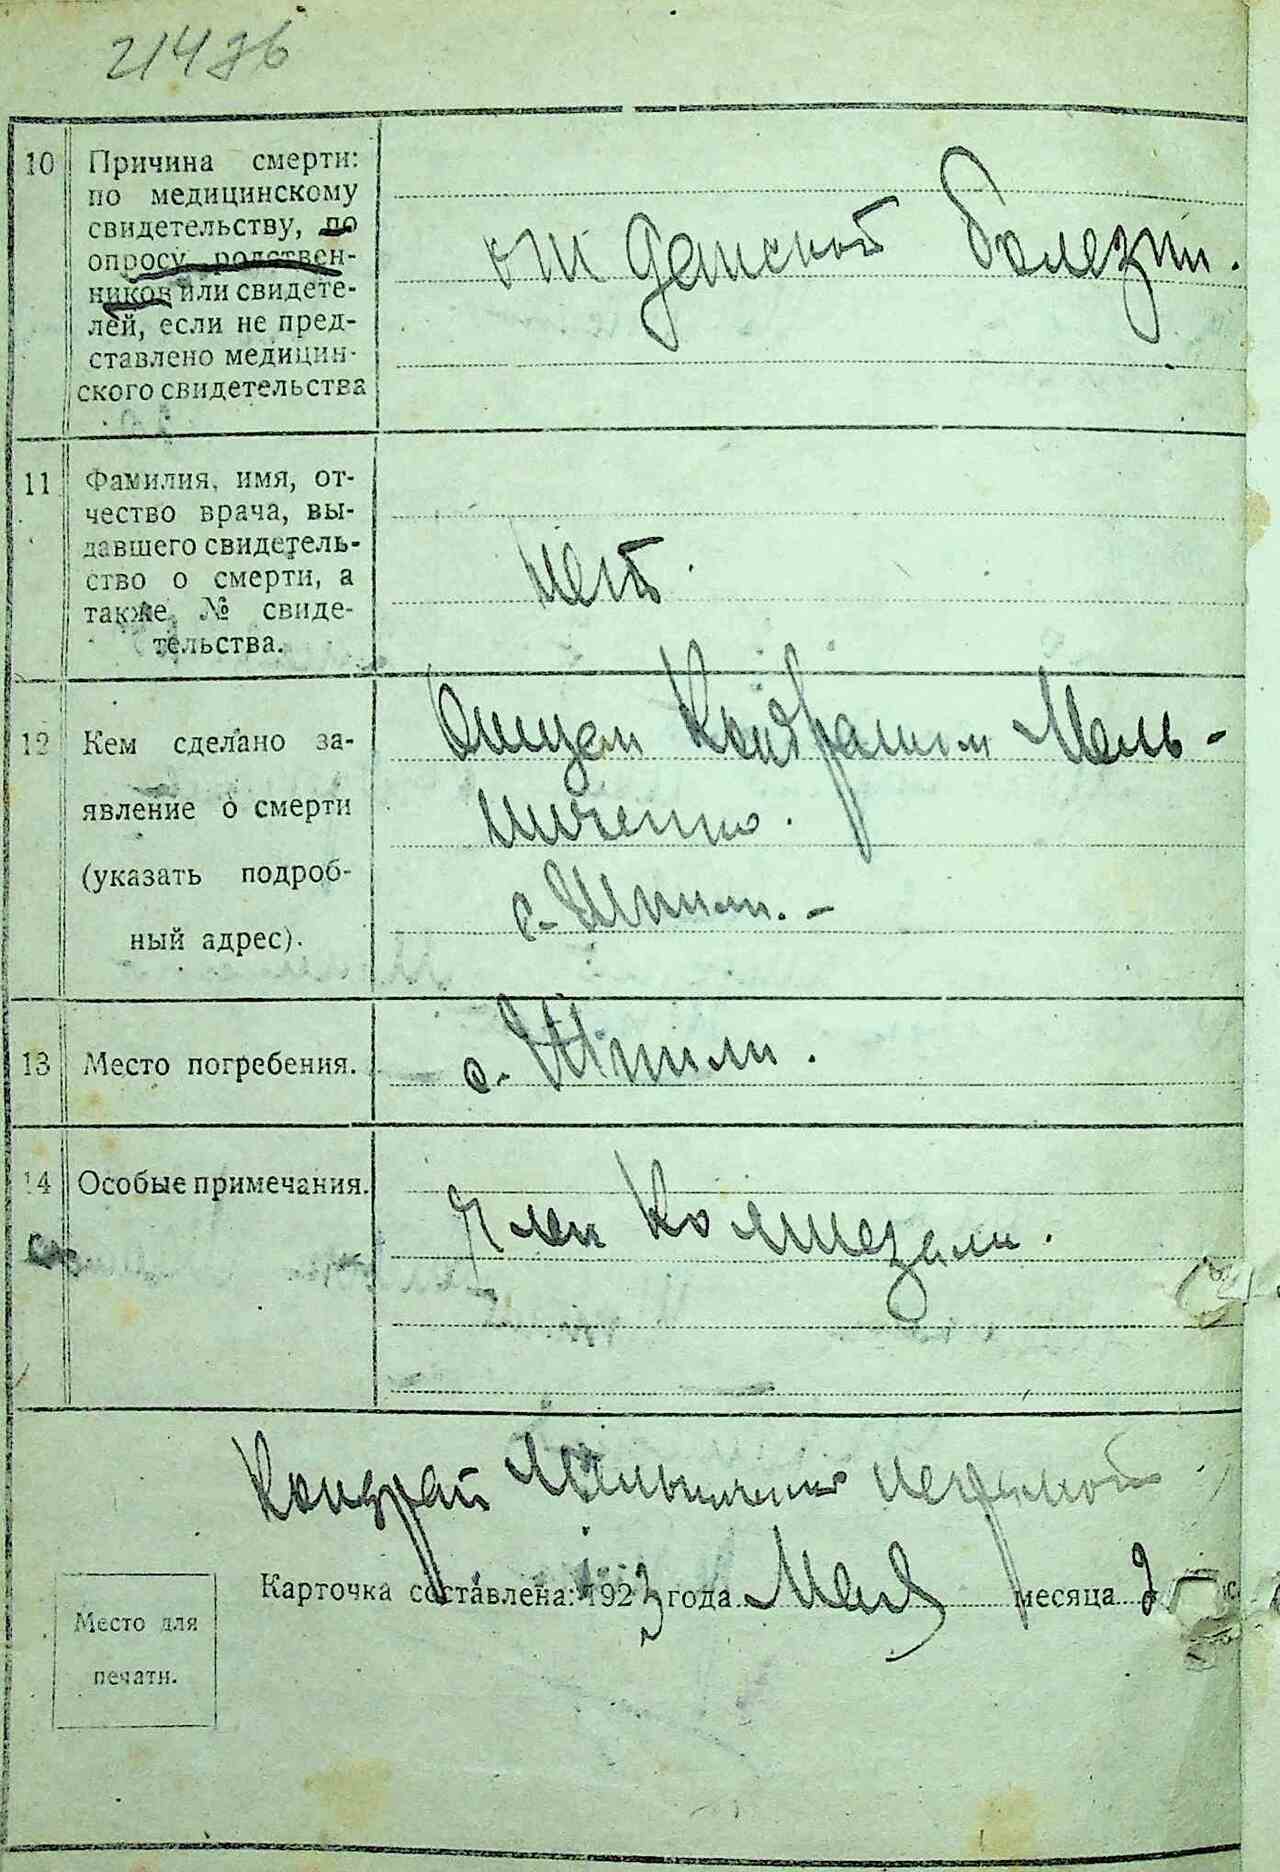 21436
10 Причина смерти:
по медицинскому
свидетельству, по
опросу родствен-
ников или свидете-
лей, если не пред-
ставлено медицин-
ского свидетельства
от детской болезни.
11 Фамилия, имя, от-
чество врача, вы-
давшего свидетель-
ство о смерти, а
также № свиде-
тельства.
нет.
12 Кем сделано за-
явление о смерти
(указать подроб-
ный адрес).
Отцем Кондратом Мель-
ниченко.
с. Шпили. -
13 Место погребения.
с. Шпили.
14 Особые примечания.
Член
Кондрат Мельниченко неграмот
Карточка составлена: 1923 года Мая месяца
Место для
печати.